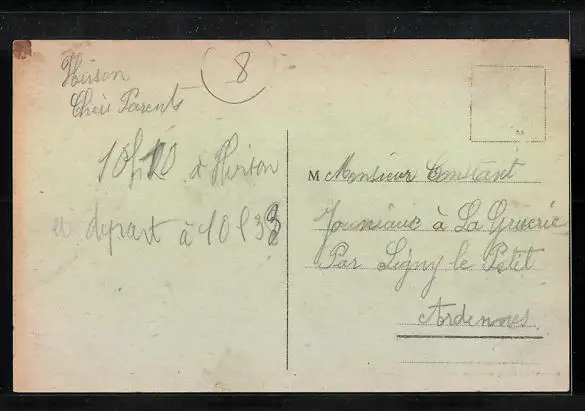 8
Hirson
Chèrs Parents
10h10 à Hirson
et départ à 10h33
M Monsieur Constant
à La Gruerie
Par Ligny le Petit
Ardennes